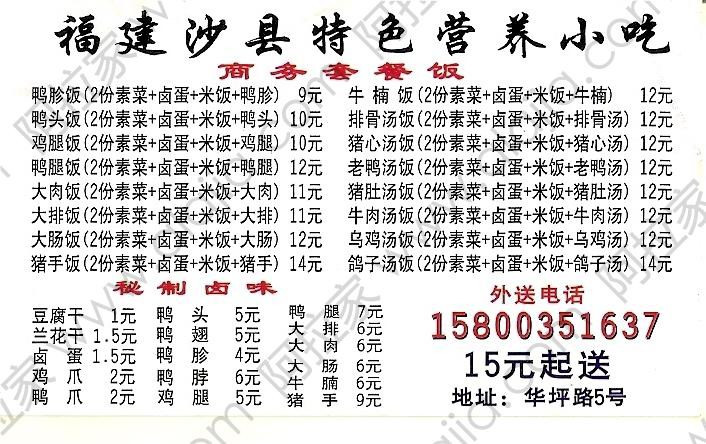 福建沙县特色营养小吃
商务套餐饭
鸭胗饭(2份素菜+卤蛋+米饭+鸭胗) 9元
鸭头饭(2份素菜+卤蛋+米饭+鸭头) 10元
鸡腿饭(2份素菜+卤蛋+米饭+鸡腿) 10元
鸭腿饭(2份素菜+卤蛋+米饭+鸭腿) 12元
大肉饭(2份素菜+卤蛋+米饭+大肉) 11元
大排饭(2份素菜+卤蛋+米饭+大排) 11元
大肠饭(2份素菜+卤蛋+米饭+大肠) 12元
猪手饭(2份素菜+卤蛋+米饭+猪手) 14元
牛楠饭(2份素菜+卤蛋+米饭+牛楠) 12元
排骨汤饭(2份素菜+卤蛋+米饭+排骨汤) 12元
猪心汤饭(2份素菜+卤蛋+米饭+猪心汤) 12元
老鸭汤饭(2份素菜+卤蛋+米饭+老鸭汤) 12元
猪肚汤饭(2份素菜+卤蛋+米饭+猪肚汤) 12元
牛肉汤饭(2份素菜+卤蛋+米饭+牛肉汤) 12元
乌鸡汤饭(2份素菜+卤蛋+米饭+乌鸡汤) 12元
鸽子汤饭(2份素菜+卤蛋+米饭+鸽子汤) 14元
秘制卤味
豆腐干 1元
兰花干 1.5元
卤蛋 1.5元
鸡爪 2元
鸭爪 2元
鸭头 5元
鸭翅 5元
鸭胗 4元
鸭脖 6元
鸡腿 5元
鸭腿 7元
大排 6元
大肉 6元
大肠 6元
牛腩 6元
猪手 9元
外送电话
15800351637
15元起送
地址：华坪路5号
阿拉家 www.alajia.com